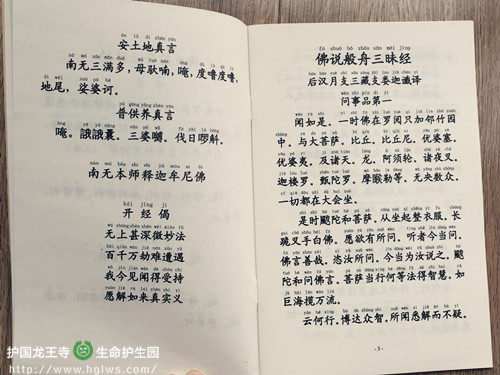 安土地真言
南无三满多，母驮喃，唵，度噜度噜，
地尾，娑婆诃。
普供养真言
唵。誐誐曩。三婆嚩。伐日啰斛。
南无本师释迦牟尼佛
kāi jīng jì
开经偈
无上甚深微妙法
百千万劫难遭遇
我今见闻得受持
愿解如来真实义
fó shuō bō zhōu sān mèi jīng
佛说般舟三昧经
后汉月支三藏支娄迦谶译
问事品第一
闻如是。一时佛在罗阅只加邻竹园
中。与大菩萨。比丘。比丘尼。优婆塞。
优婆夷。及诸天。龙。阿须轮。诸夜叉。
迦楼罗。甄陀罗。摩睺勒等。无央数众。
一切都在大会坐。
是时颰陀和菩萨。从坐起整衣服。长
跪叉手白佛。愿欲有所问。听者今当问。
佛言善哉。恣汝所问。今当为汝说之。颰
陀和问佛言。菩萨当行何等法得智慧。如
巨海揽万流。
云何行。博达众智。所闻悉解而不疑。
-3-
护国龙王寺 生命护生园
http://www.hglws.com